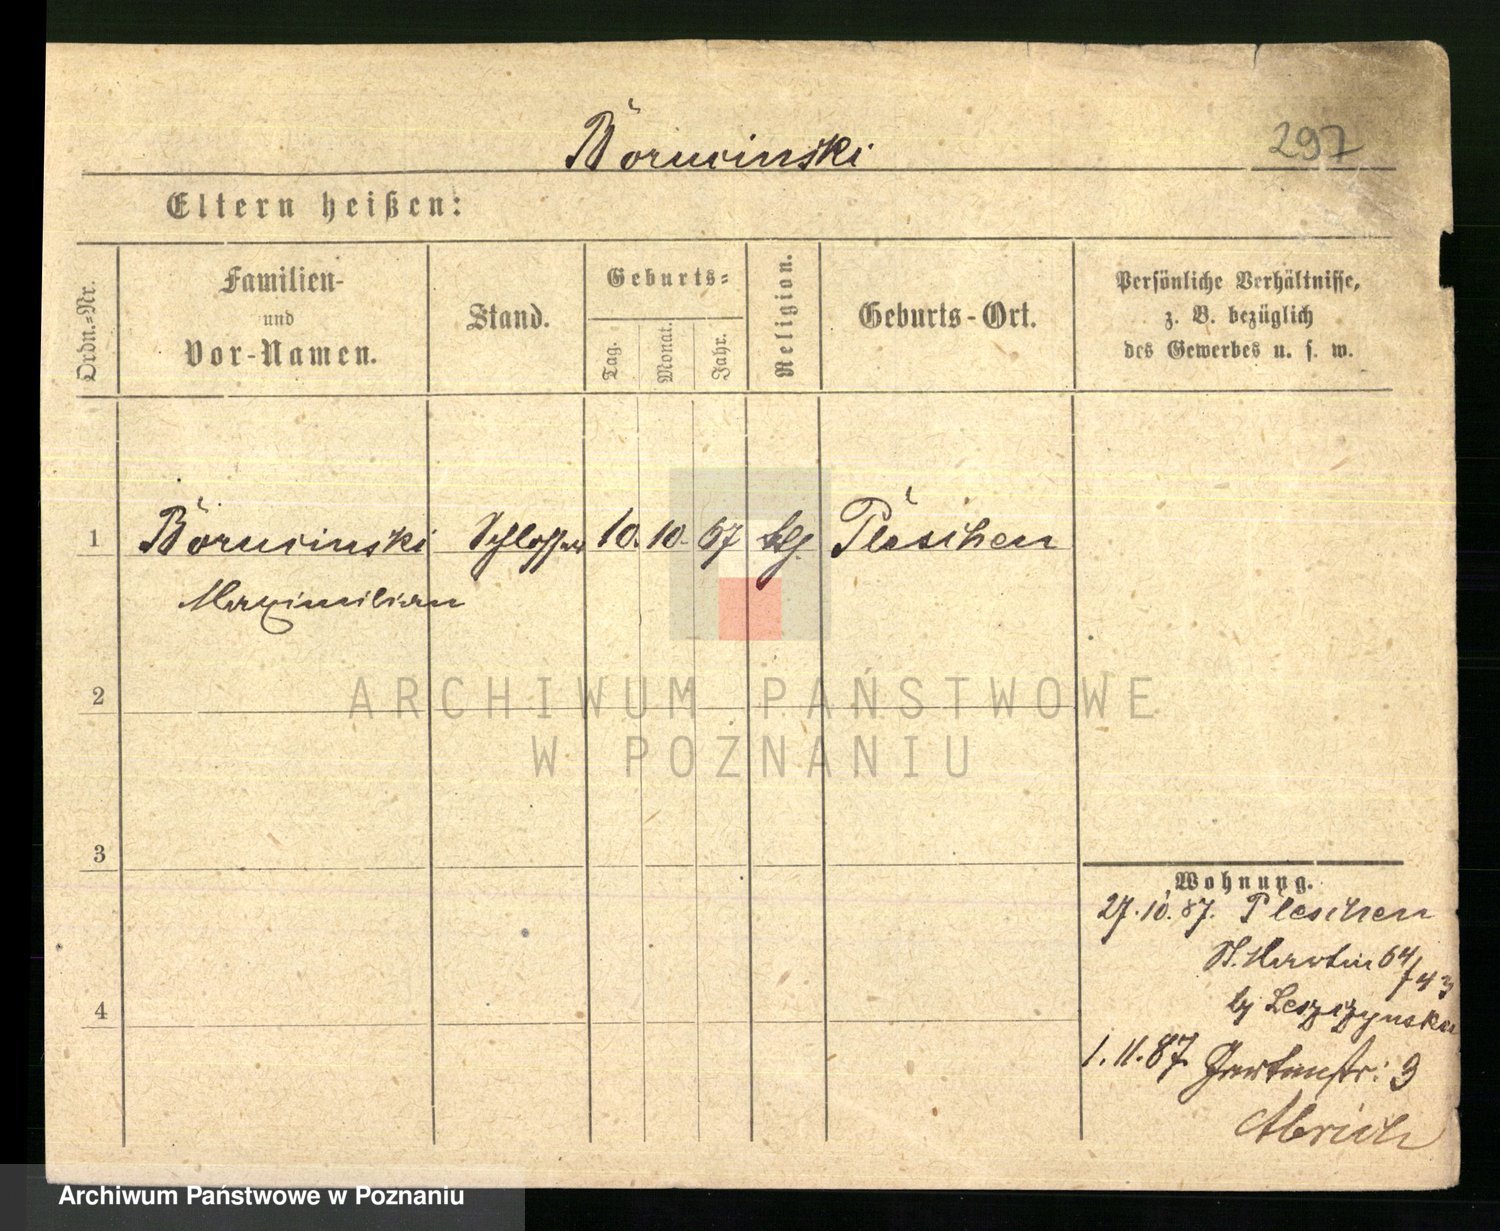 Borucinski
297
Eltern heißen:
Ordn.-Nr.
Familien-
und
Vor-Namen.
Stand.
Geburts-
Tag.
Monat.
Jahr.
Religion.
Geburts-Ort.
Persönliche Verhältnisse,
z. B. bezüglich
des Gewerbes u. s. w.
1 Borucinski Schlosser 10. 10. 67 klg. Pleschen
Maximilian
2
3
4
Wohnung.
27.10.87. Pleschen
St. Martin 64/43
by
1.11.87 Gartenstr. 3
ARCHIWUM PAŃSTWOWE
W POZNANIU
Archiwum Państwowe w Poznaniu